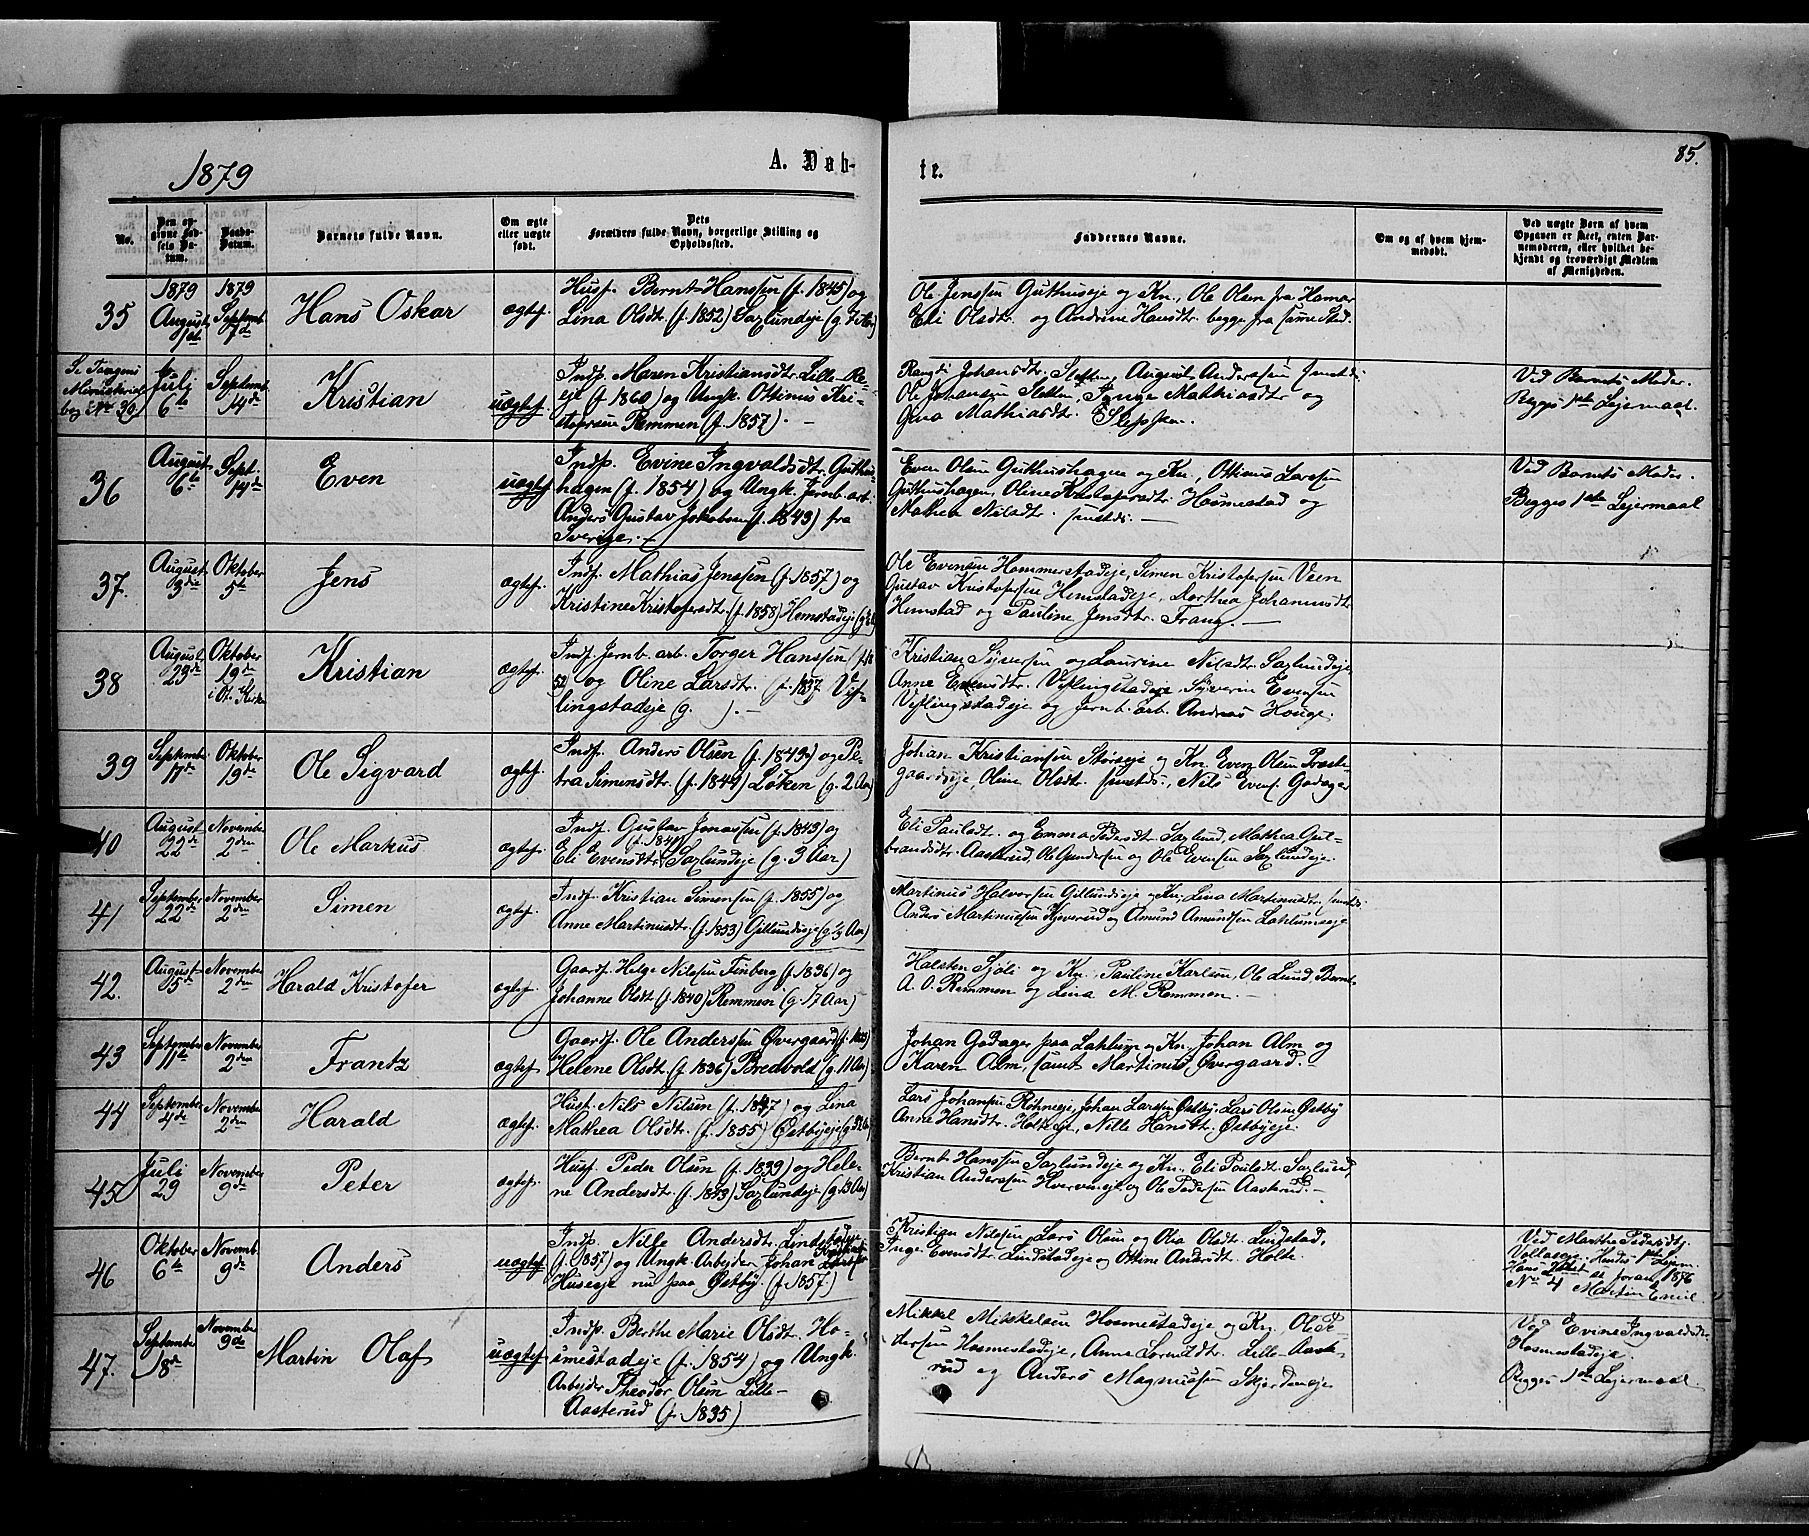 1879
A. Døb-
te.
85.
No.
Den op-
givne Fød-
sels Da-
tum.
Daabs-
Datum.
Barnets fulde Navn.
Om ægte
eller uægte
født.
Dets
Forældres fulde Navn, borgerlige Stilling og
Opholdssted.
Faddernes Navne.
Om og af hvem hjem-
medøbt.
Ved uægte Børn af hvem
Opgaven er skeet, enten Bar-
nemoderen, eller hvilket be-
kjendt og troværdigt Medlem
af Menigheden.
35
1879
August
1879
Septemb.
7de
Hans Oskar
ægtef.
Husf. Bernt Hanssen (f. 1845) og
Lina Olsdtr. (f. 1852) Saxlundeje
Ole Jenssen Guthuseje og Kn., Ole Olsen fra Hamar
Eli Olsdtr. og Andrine Hansdtr. begge fra samme Sted.
Se Tangens
Ministerial
bog No 39
Juli
6te
Septemb.
14de
Kristian
uægtef.
Indp. Maren Kristiansdtr. Lille-Re-
eje (f. 1860) og Ungk. Ottinus Kri-
stofersen Remmen (f. 1857). —
Rangdi Johansdtr. Sletten, August Anderssen smstds.
Ole Johansen Sletten, Inge Mathiasdtr. og
Gina Mathiasdtr.
Ved Barnets Moder.
Begges 1ste Lejermaal.
36
August
6te
Sept.
14de
Even
uægtef.
Indp. Evine Ingvaldsdtr. Guthus-
hagen (f. 1854) og Ungk. Jernb. arb.
Anders Gustav Jakobsen (f. 1843) fra
Sverige. —
Even Olsen Guthushagen og Kn., Ottinus Larssen
Guthushagen, Oline Kristofersdtr. Hosmestad og
Mathea Nilsdtr. smstds. —
Ved Barnets Moder.
Begges 1ste Lejermaal
37.
August
3die
Oktober
5te
Jens
ægtef.
Indp. Mathias Jenssen (f. 1857) og
Kristine Kristofersdtr. (f. 1858) Hemstadeje
Ole Evensen Hommerstadeje, Simen Kristofersen Veen
Gustav Kristofersen Hemstadeje, Dorthea Johannsdtr.
Hemstad og Pauline Jensdtr. Frang. —
38
August
23de
Oktober
19de
i Ot. Kirke
Kristian
ægtef.
Indp. Jernb. arb. Torger Hanssen (f. 18
52) og Oline Larsdtr. (f. 1837 Vif-
lingstadeje (g. ). —
Kristian Syversen og Laurine Nilsdtr. Saxlundeje
Anne Evensdtr. Viflingstadeje, Syverin Evensen
Viflingstadeje og Jernb. arb. Andreas Houge.
39
September
17de
Oktober
19de
Ole Sigvard
ægtef.
Indp. Anders Olsen (f. 1843) og Pe-
tra Simensdtr. (f. 1849) Løken (g. 2 Aar)
Johan Kristiansen Storseje og Kn. Even Olsen Præste-
gaardseje, Oline Olsdtr. smstds., Nils Evens. Godager
40
August
22de
November
2den
Ole Markus
ægtef.
Indp. Gustav Jonassen (f. 1843) og
Eli Evensdtr. Saxlundeje (g. 3 Aar)
Eli Paulsdtr. og Emma Pedersdtr. Saxlund, Mathea Gul-
brandsdtr. Aasterud, Ole Gundersen og Ole Evensen Saxlundeje.
41
September
22de
November
2den
Simen
ægtef.
Indp. Kristian Simensen (f. 1855) og
Anne Martinusdtr. (f. 1853) Gillundseje (g. 3 Aar)
Martinus Halvorsen Gillundseje og Kn., Lina Martinusdtr. smstds.
Anders Martinussen Kjeverud og Amund Amundsen Lahlumseje
42.
August
5te
November
2den
Harald Kristofer
ægtef.
Gaardf. Helge Nilssen Finberg (f. 1836) og
Johanne Olsdt (f. 1840) Remmen (g. 17 Aar)
Halsten Sjøli og Kn., Pauline Karlsen, Ole Lund, Bernt
A. O. Remmen og Lina M. Remmen. —
43
September
11te
November
2den
Frantz
ægtef.
Gaardf. Ole Anderssen Øvergaard
Helene Olsdt. (f. 1836) Bredvold (g. 11 Aar)
Johan Godager paa Lahlum og Kn., Johan Alm og
Karen Alm, samt Martinus Øvergaard.
44
September
4de
November
2den
Harald
ægtef.
Husf. Nils Nilsen (f. 1847) og Lina
Mathea Olsdtr. (f. 1855) Østbyeje
Lars Johansen Røhneeje, Johan Larssen Østby, Lars Olsen Østby
Anne Hansdtr. Holteeje, Nille Hansdtr. Østbyeje.
45
Juli
29
November
9de
Peter
ægtef.
Husf. Peder Olsen (f. 1839) og Hele-
ne Andersdt. (f. 1843) Saxlundeje (g. 13 Aar)
Bernt Hanssen Saxlundeje og Kn., Eli Paulsdt. Saxlund,
Kristian Anderssen Hvervineje og Ole Pedersen Aasterud. —
46
Oktober
6te
Novemb.
9de
Anders
uægtef.
Indp. Nille Andersdt. Lindstadeje
(f. 1857) og Ungk. Arbejder Johan
Huseeje nu paa Østby. (f. 1857.)
Kristian Nilssen, Lars Olsen og Olia Olsdt. Lindstad,
Inge Evensdtr Lindstadeje og Ottine Andersdt. Holte.
Ved Marthe Pedersdtr.
Hans
No 4 Martin Emil
47.
September
18de
November
9de
Martin Olaf
uægtef.
Indp. Berthe Marie Olsdt. Ho-
smestadeje (f. 1854) og Ungk.
Arbejder Theodor Olsen Lille-
Aasterud (f. 1835)
Mikkel Mikkelsen Hosmestadeje og Kn., Ole Pe-
dersen Hosmestadeje, Anne Larsdtr. Lille-Aaste-
rud og Anders Magnussen Skjerdeneje
Ved Evine Ingvaldsdtr
Hosmestadeje.
Begges 1ste Lejermaal